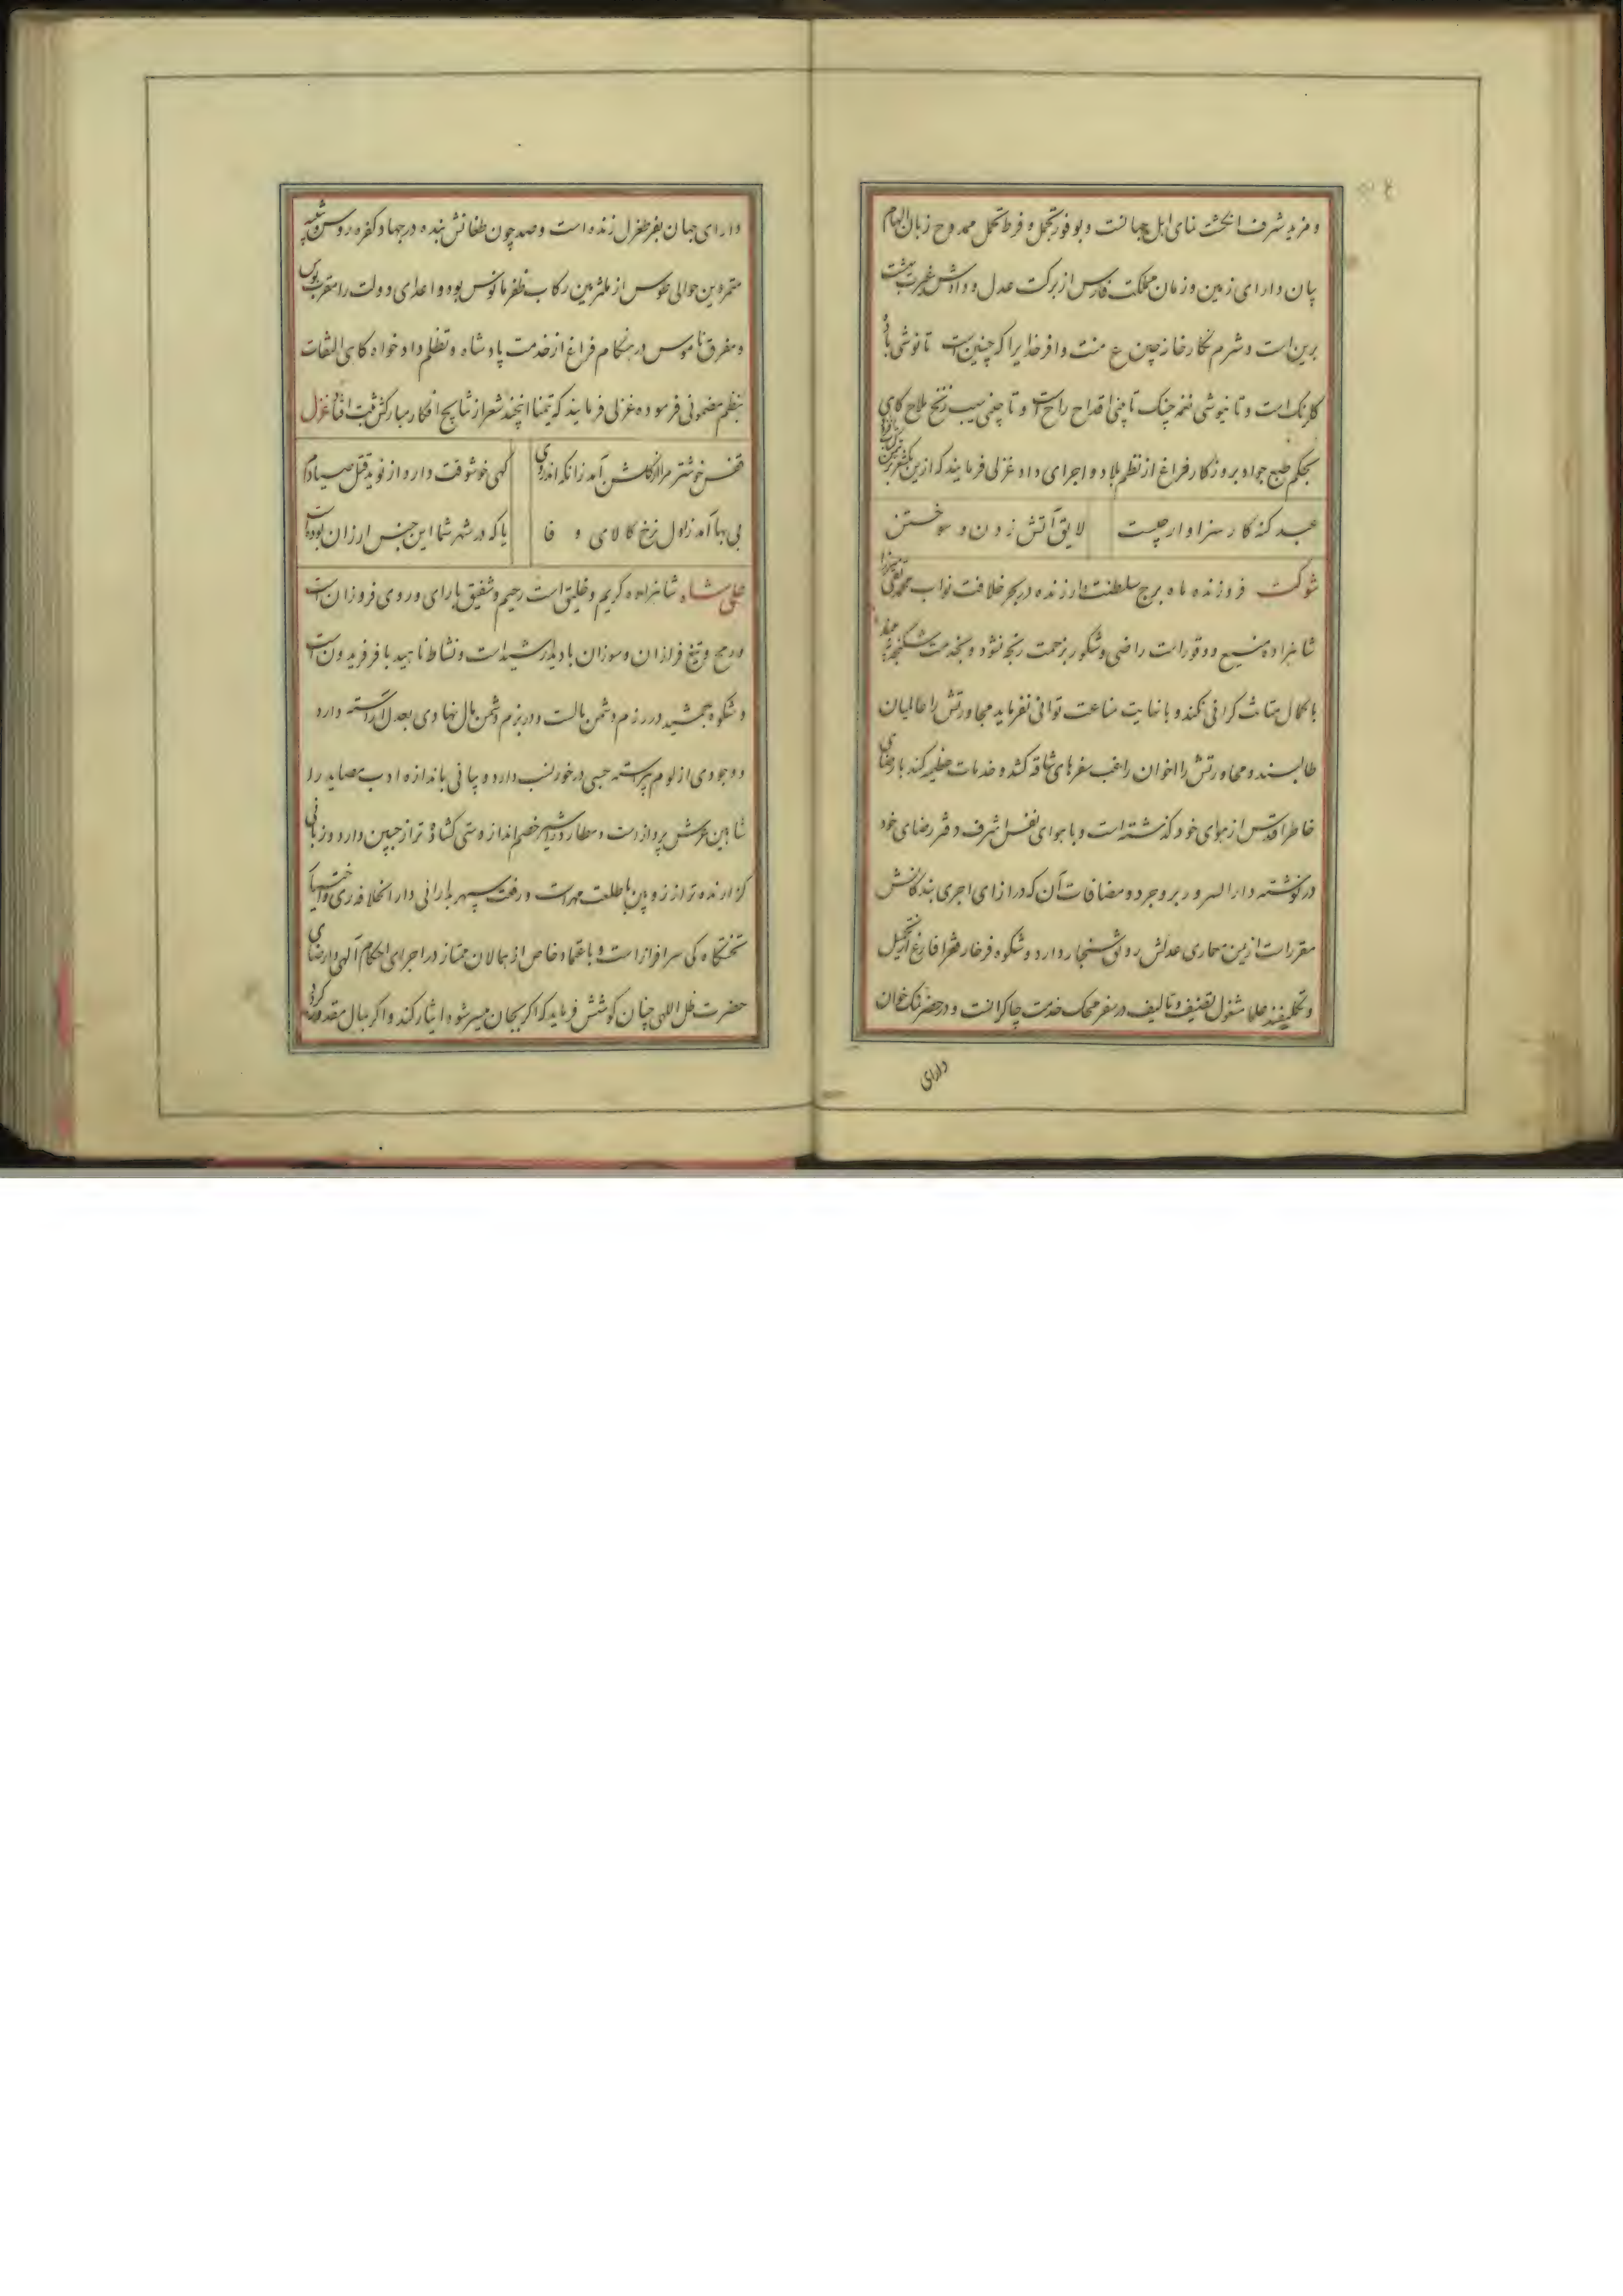 و مزید شرف انگشت نمای اهل جهانست و بوفور تجمل و فرط تحمل ممدوح زبان الهام
بیان دارای زمین و زمان مملکت فارس از برکت عدل و دادش غیرت بهشت
برین است و شرم نگارخانه چین ع منت وافر خدا یرا که چنین است تا نوشی باده
گلرنک است و تا نیوشی نغمه چنک تا بینی اقداح راح است و تا چینی سیب زنخ ملاح گاهی
بحکم طبع جواد بروزکار فراغ از نظم بلاد و اجرای داد غزلی فرمایند که ازین یکشعر
عبد کنه کار سزاوار چیست لایق آتش زدن و سوختن
شوکت فروزنده ماه برج سلطنت ارزنده در بحر خلافت نواب محمد تقی میرزا
شاهزاده و وقور است راضی و شکور بزحمت رنجه نشود و بخدمت شکنجه
با کمال متانت گرانی نکند و با غایت مناعت توانی نفرماید مجاورتش را عالمیان
طالبند و محاورتش را اخوان راغب سفرهای شاقه کشد و خدمات عظیمه کند با رضای
خاطر اقدس از هوای خود گذشته است و با هوای نفس اشرف دفتر رضای خود
در نوشته دار السرور بروجرد و مضافات آن که در ازای اجری بندگانش
مقرر است ازین معماری عدلش رونق سنجار دارد و شکوه فرخار فقرا فارغ از تحمیل
و تکلیفند علما مشغول تصنیف و تالیف در سفر محک خدمت چاکرانست و در حضر نمک خوان
دارای
دارای جهان بفر طغرل زنده است و صد چون طغانش بنده در جهاد کفره روس
متمردین حوالی طوس از ملتزمین رکاب ظفر مانوس بوده و اعدای دولت را مقرب بوس
و مفرق ناموس در هنکام فراغ از خدمت پادشاه و تظلم دادخواه گاهی التفات
بنظم مضمونی فرموده غزلی فرمایند که تیمنا اینچند شعر از نتایج افکار مبارکش ثبت افتاد غزل
قفس خوشتر مرا از گلشن آمد زانکه اندر وی گهی خوشوقت دارد از نوید قتل صیادم
بی بها آمد ز اول نرخ کالای وفا یا که در شهر شما این جنس ارزان بوده است
علی شاه شاهزاده کریم و خلیق است رحیم و شفیق با رای و روی فروزان است
و رمح و تیغ فرازان و سوزان با دیدار شید است و نشاط ناهید با فر فریدون است
و شکوه جمشید در رزم دشمن مالست و در بزم دشمن مال نهادی بعدل آراسته دارد
و وجودی از لوم پیراسته حسبی در خور نسب دارد و بیانی باندازه ادب بصاید را
شاهین عرش پرواز است و مطارد را شیر خصم انداز دستی گشاده تر از جبین دارد و زبانی
گزارنده تر از زوبین با طلعت مهر است و رفعت سپهر بدارائی دار الخلافه ری و اختیار
تختگاه کی سرافراز است و باعتماد خاص از همالان ممتاز در اجرای احکام آلهی و ارضای
حضرت ظل اللهی چنان کوشش فرماید که اگر بجان میسر شود ایثار کند و اگر بمال مقدور